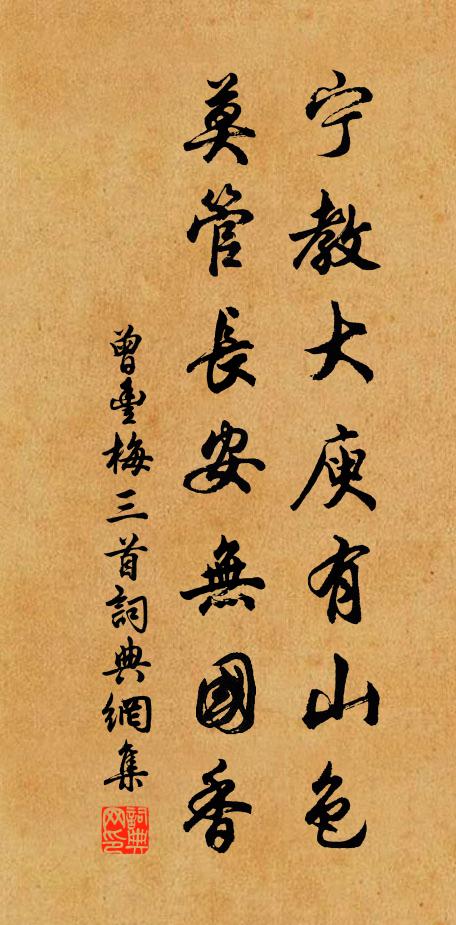 宁教大庾有山色
莫管長安無國香
曾豐梅三首詞典網集
詞典网印